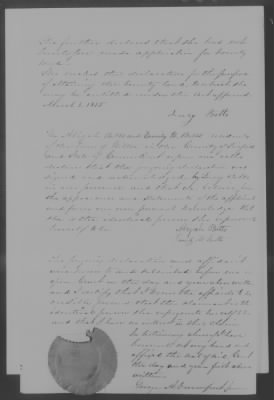 She further declared that she has not
heretofore made application for bounty
land.
She makes this declaration for the purpose
of obtaining the bounty land to which she
may be entitled under the act approved
March 3, 1855
Betts
We Abijah Betts and Emily B. Betts residents
of the Town of in the County of Fairfield
and State of Connecticut upon our oaths
declare that the foregoing declaration was
signed and acknowledged by Betts
in our presence and that we believe from
the appearance and statements of the applicant
and from our own personal knowledge that
she is the identical person she represents
herself to be
Abijah Betts
Emily B. Betts
The foregoing declaration and affidavit
was sworn to and subscribed before me in
open Court on the day and year above written
and I certify that I know the affiants to be
credible persons that the claimant is the
identical person she represents herself to be
and that I have no interest in this claim
In testimony whereof I have
hereunto set my hand and
affixed the seal of said Court
the day and year first above
written
George A. Davenport